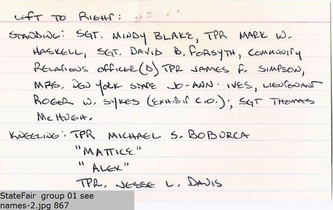 LEFT TO RIGHT:
STANDING: SGT. MINDY BLAKE, TPR MARK W.
HASKELL, SGT. DAVID B. FORSYTH, COMMUNITY
RELATIONS OFFICER(D) TPR JAMES F. SIMPSON,
MRS. NEW YORK STATE JO-ANN IVES, LIEUTENANT
ROGER W. SYKES (EXHIBIT C.O.); SGT THOMAS
MCHUGH.
KNEELING: TPR MICHAEL S. BOBURCA
"MATTICE"
"ALEX"
TPR. JESSE L. DAVIS
StateFair group 01 see
names-2.jpg 867